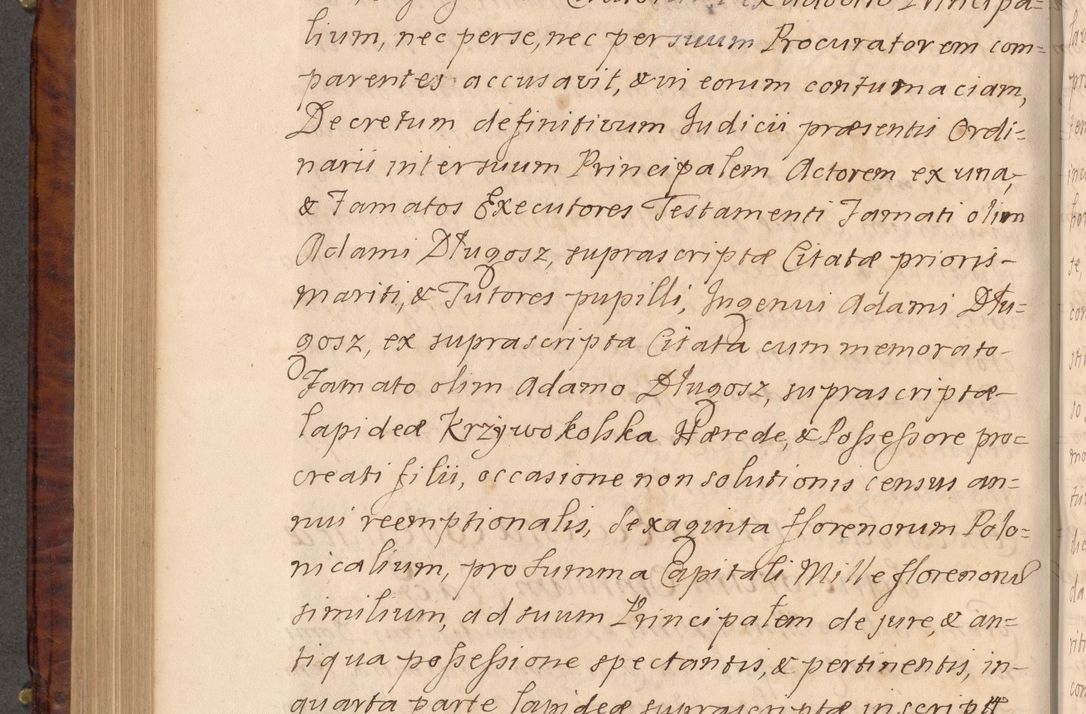 lium, nec per se, nec per suum Procuratorem com=
parentes accusavit, & in eorum contumaciam,
Decretum definitivum Iudicii præsentis Ordi=
narii inter suum Principalem Actorem ex una,
& Famatos Executores Testamenti Famati olim
Adami Długosz, suprascriptæ Citatæ prioris
mariti, & Tutores pupilli, Ingenui Adami Dłu=
gosz, ex suprascripta Citata cum memorato
Famato olim Adamo Długosz, suprascriptæ
lapideæ Krzywokolska Hærede, & Possessore pro=
creati filii, occasione non solutionis census an=
nui reemptionalis, Sexaginta florenorum Polo=
nicalium, pro Summa Capitali Mille florenorum
similium, ad suum Principalem de jure, & an=
tiqua possessione spectantis, & pertinentis, in
quarta parte lapideæ suprascriptæ inscriptæ